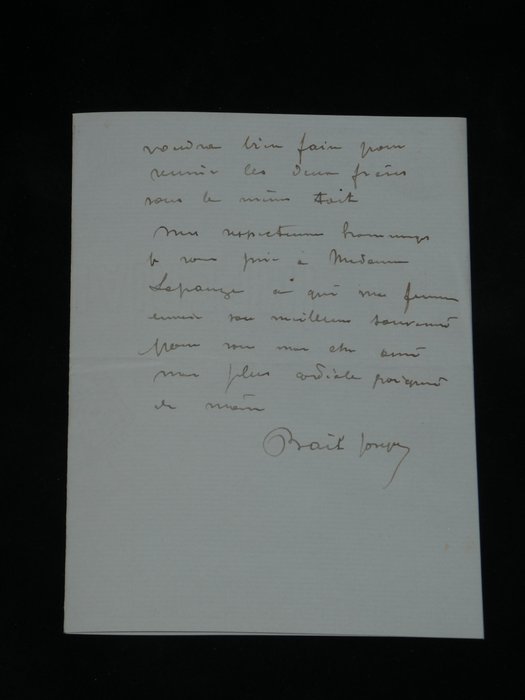 voudra bien faire pour
reunir les deux frères
sous le même toit
Mes respectueux hommages
je vous prie à Madame
Lapauze à qui ma femme
envoie son meilleur souvenir
pour vous mon cher ami
ma plus cordiale poignée
de main